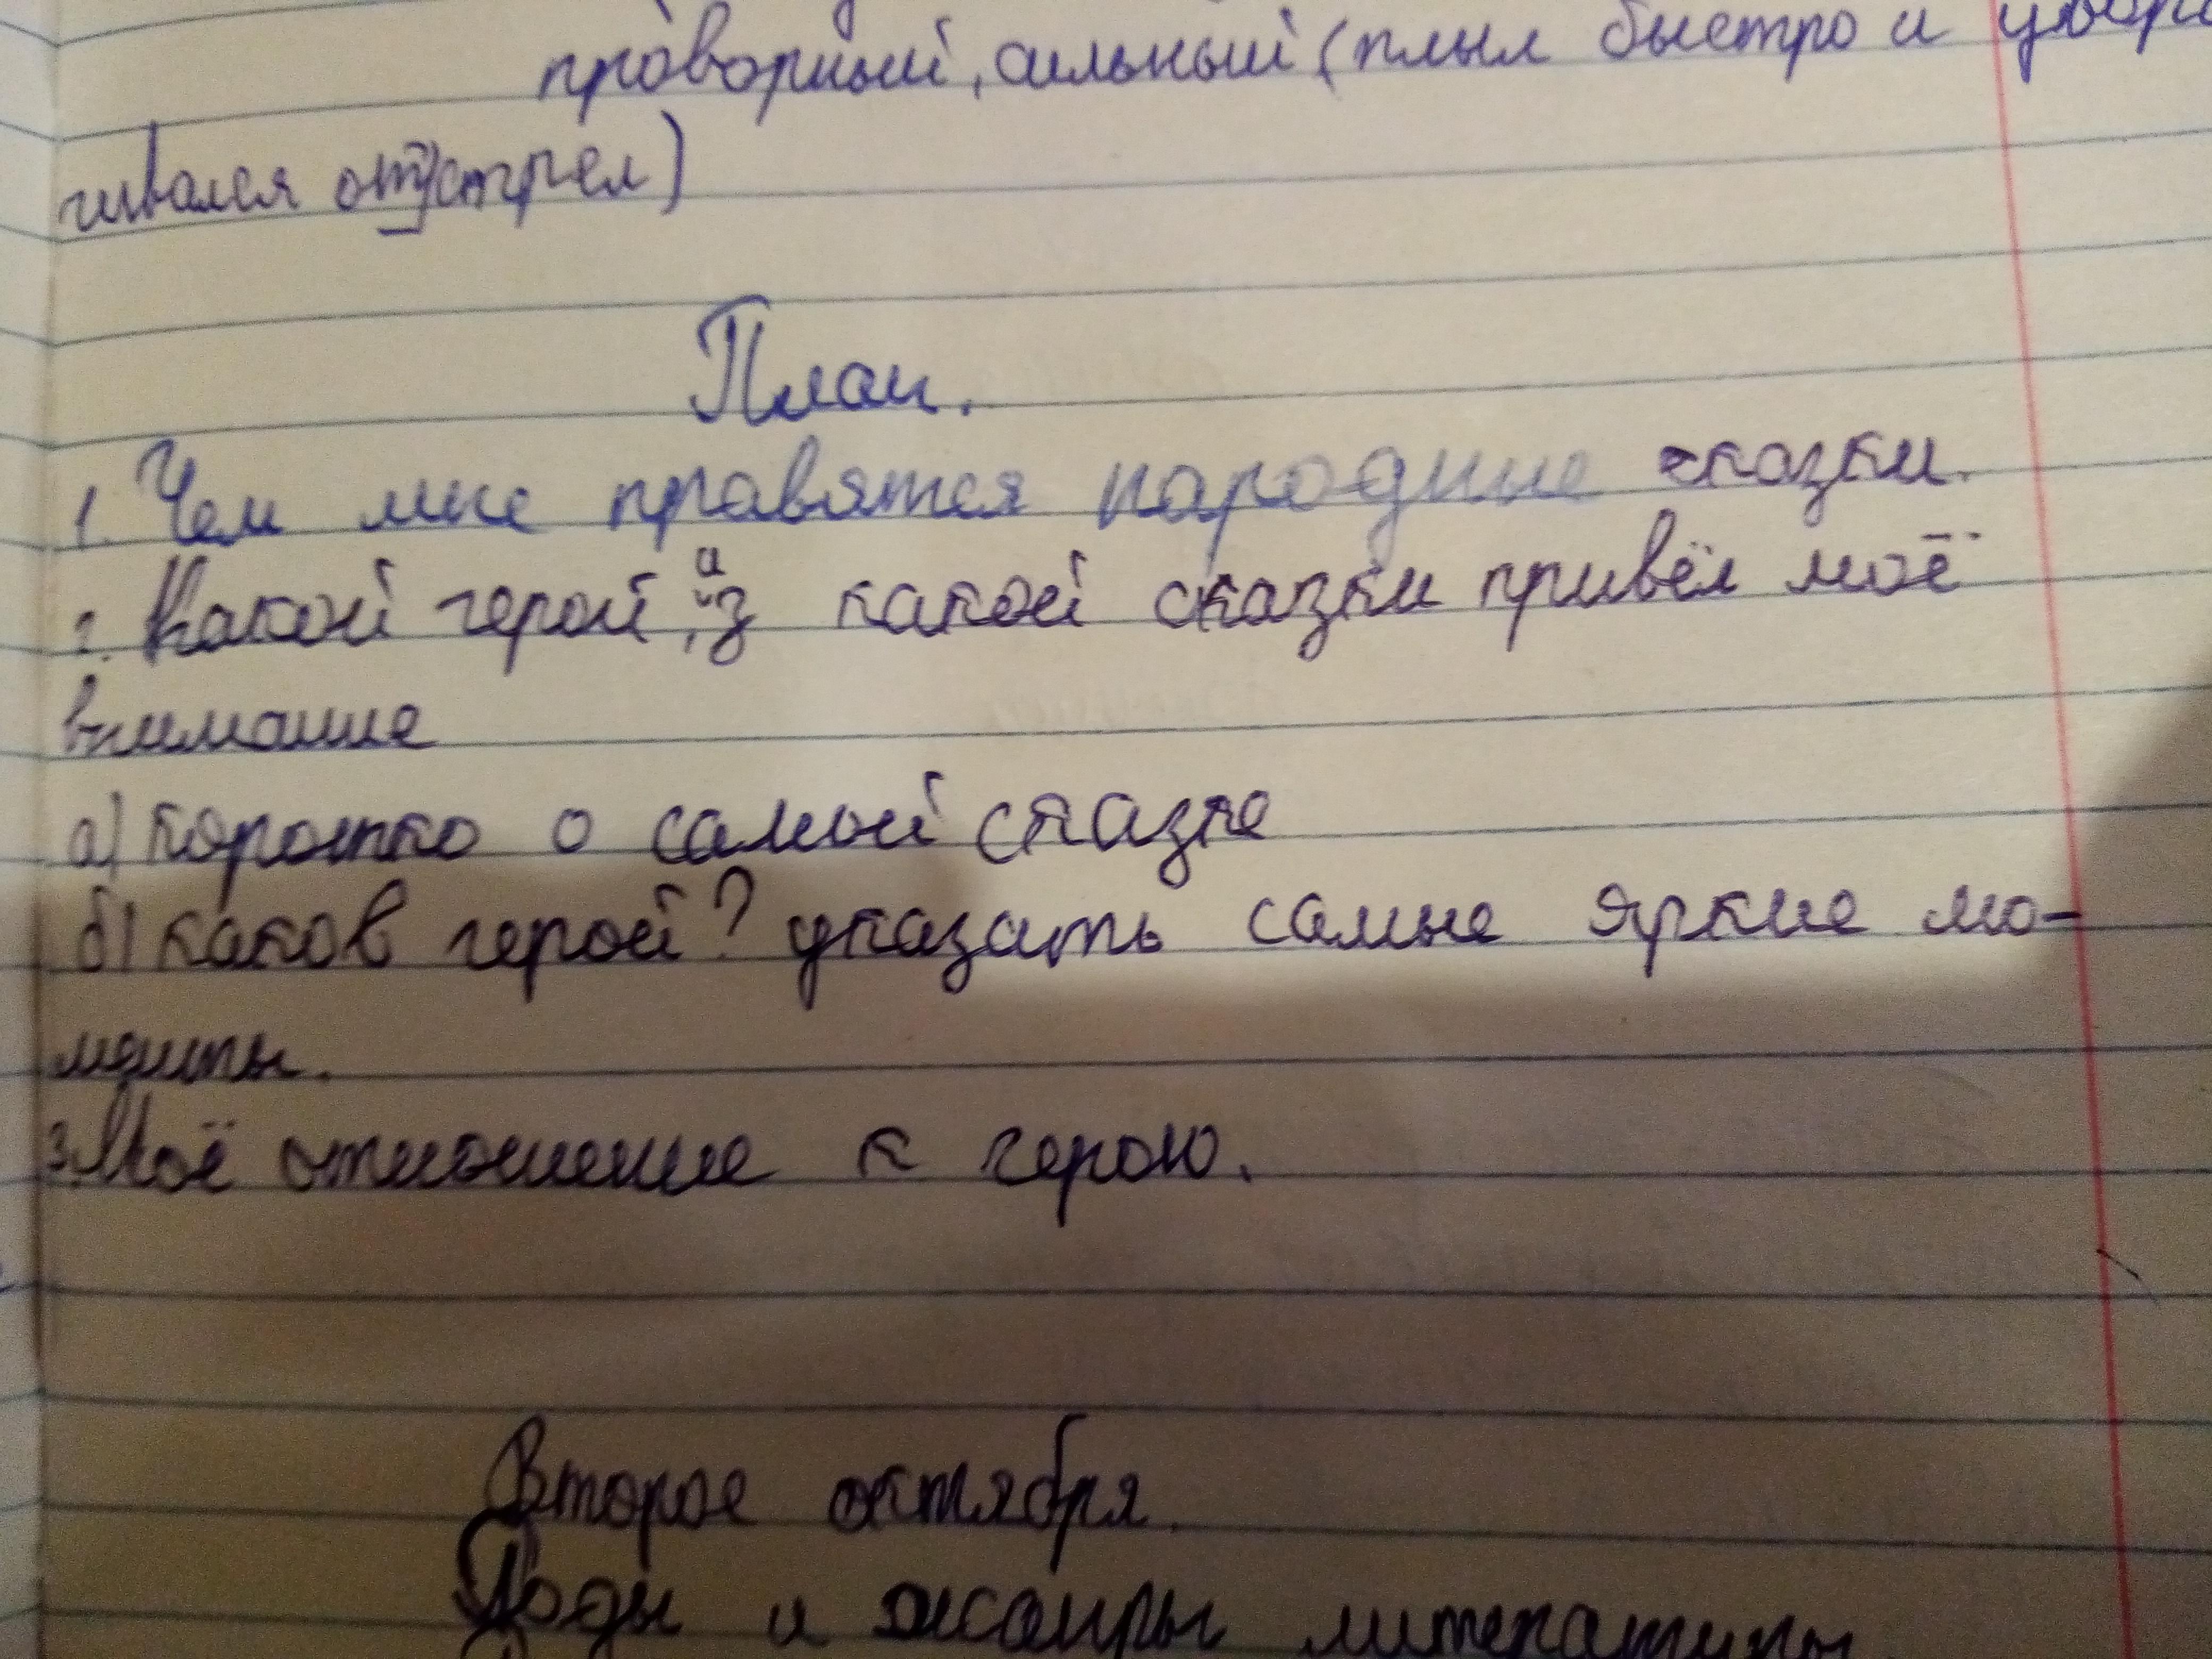 проворный, сильный (плыл быстро и увора
чивался от стрел)
План.
1. Чем мне нравятся народные сказки.
2. Какой герой, из какой сказки привёл моё
внимание
а) коротко о самой сказке
б) каков герой? указать самые яркие мо-
менты.
3. Моё отношение к герою.
Второе октября.
Роды и жанры литературы.